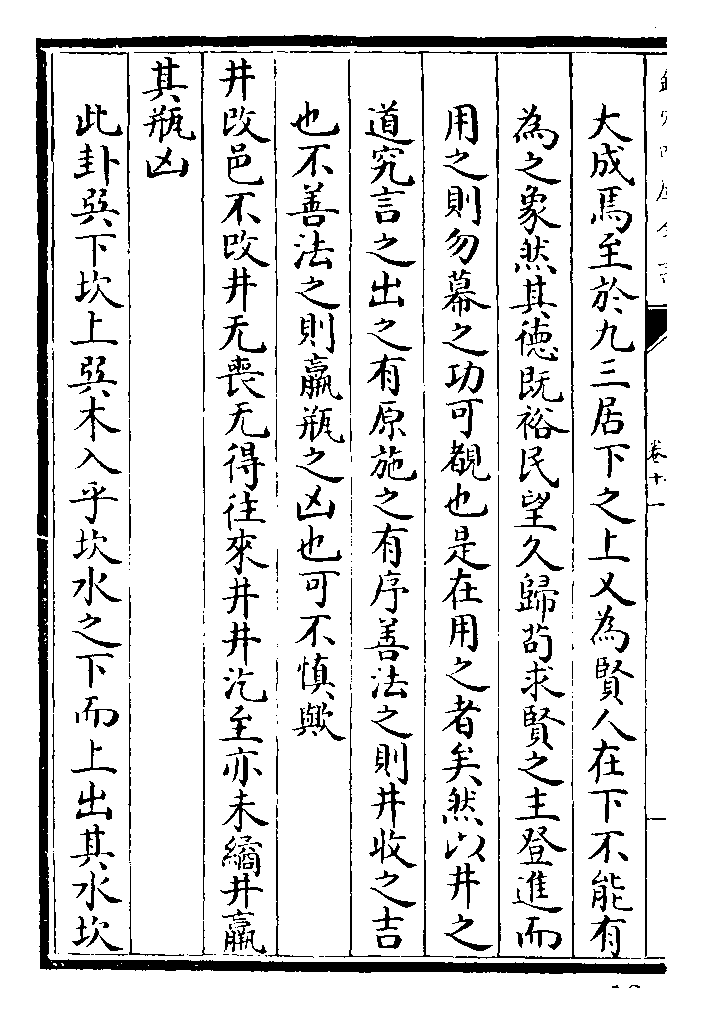 卷十一
大成焉至於九三居下之上又為賢人在下不能有
為之象然其徳既裕民望久歸茍求賢之主登進而
用之則勿幕之功可覩也是在用之者矣然以井之
道究言之出之有原施之有序善法之則井收之吉
也不善法之則羸瓶之凶也可不慎歟
井改邑不改井无喪无得往來井井汔至亦未繘井羸
其瓶凶
此卦巽下坎上巽木入乎坎水之下而上出其水坎